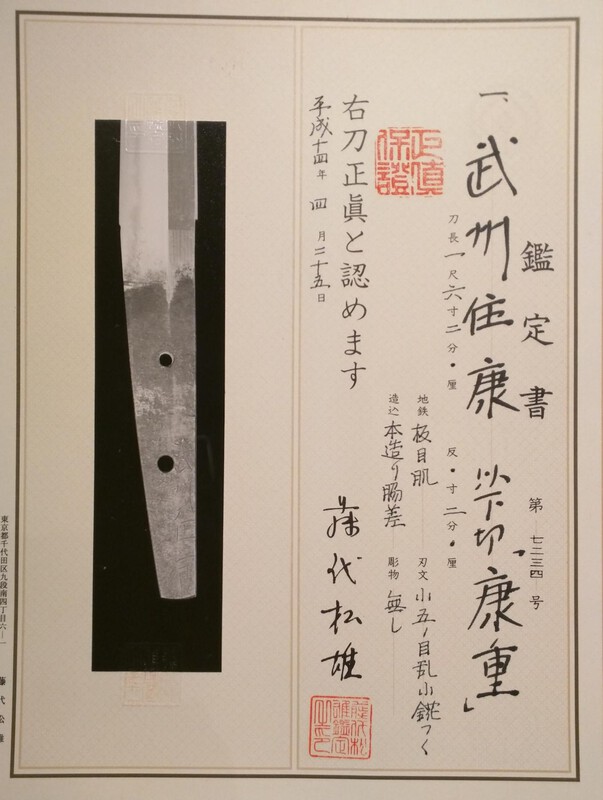 鑑定書
第 七二三四 号
一、武州住康 以下切「康重」
刀長 一尺六寸二分・厘 反・寸二分・厘
地鉄 板目肌 刃文 小五ノ目乱小錵つく
造込 本造り脇差 彫物 無し
正真保證
右刀正眞と認めます
平成十四年 四月二十五日
藤代松雄
東京都千代田区九段南四丁目六ー一 藤代松雄